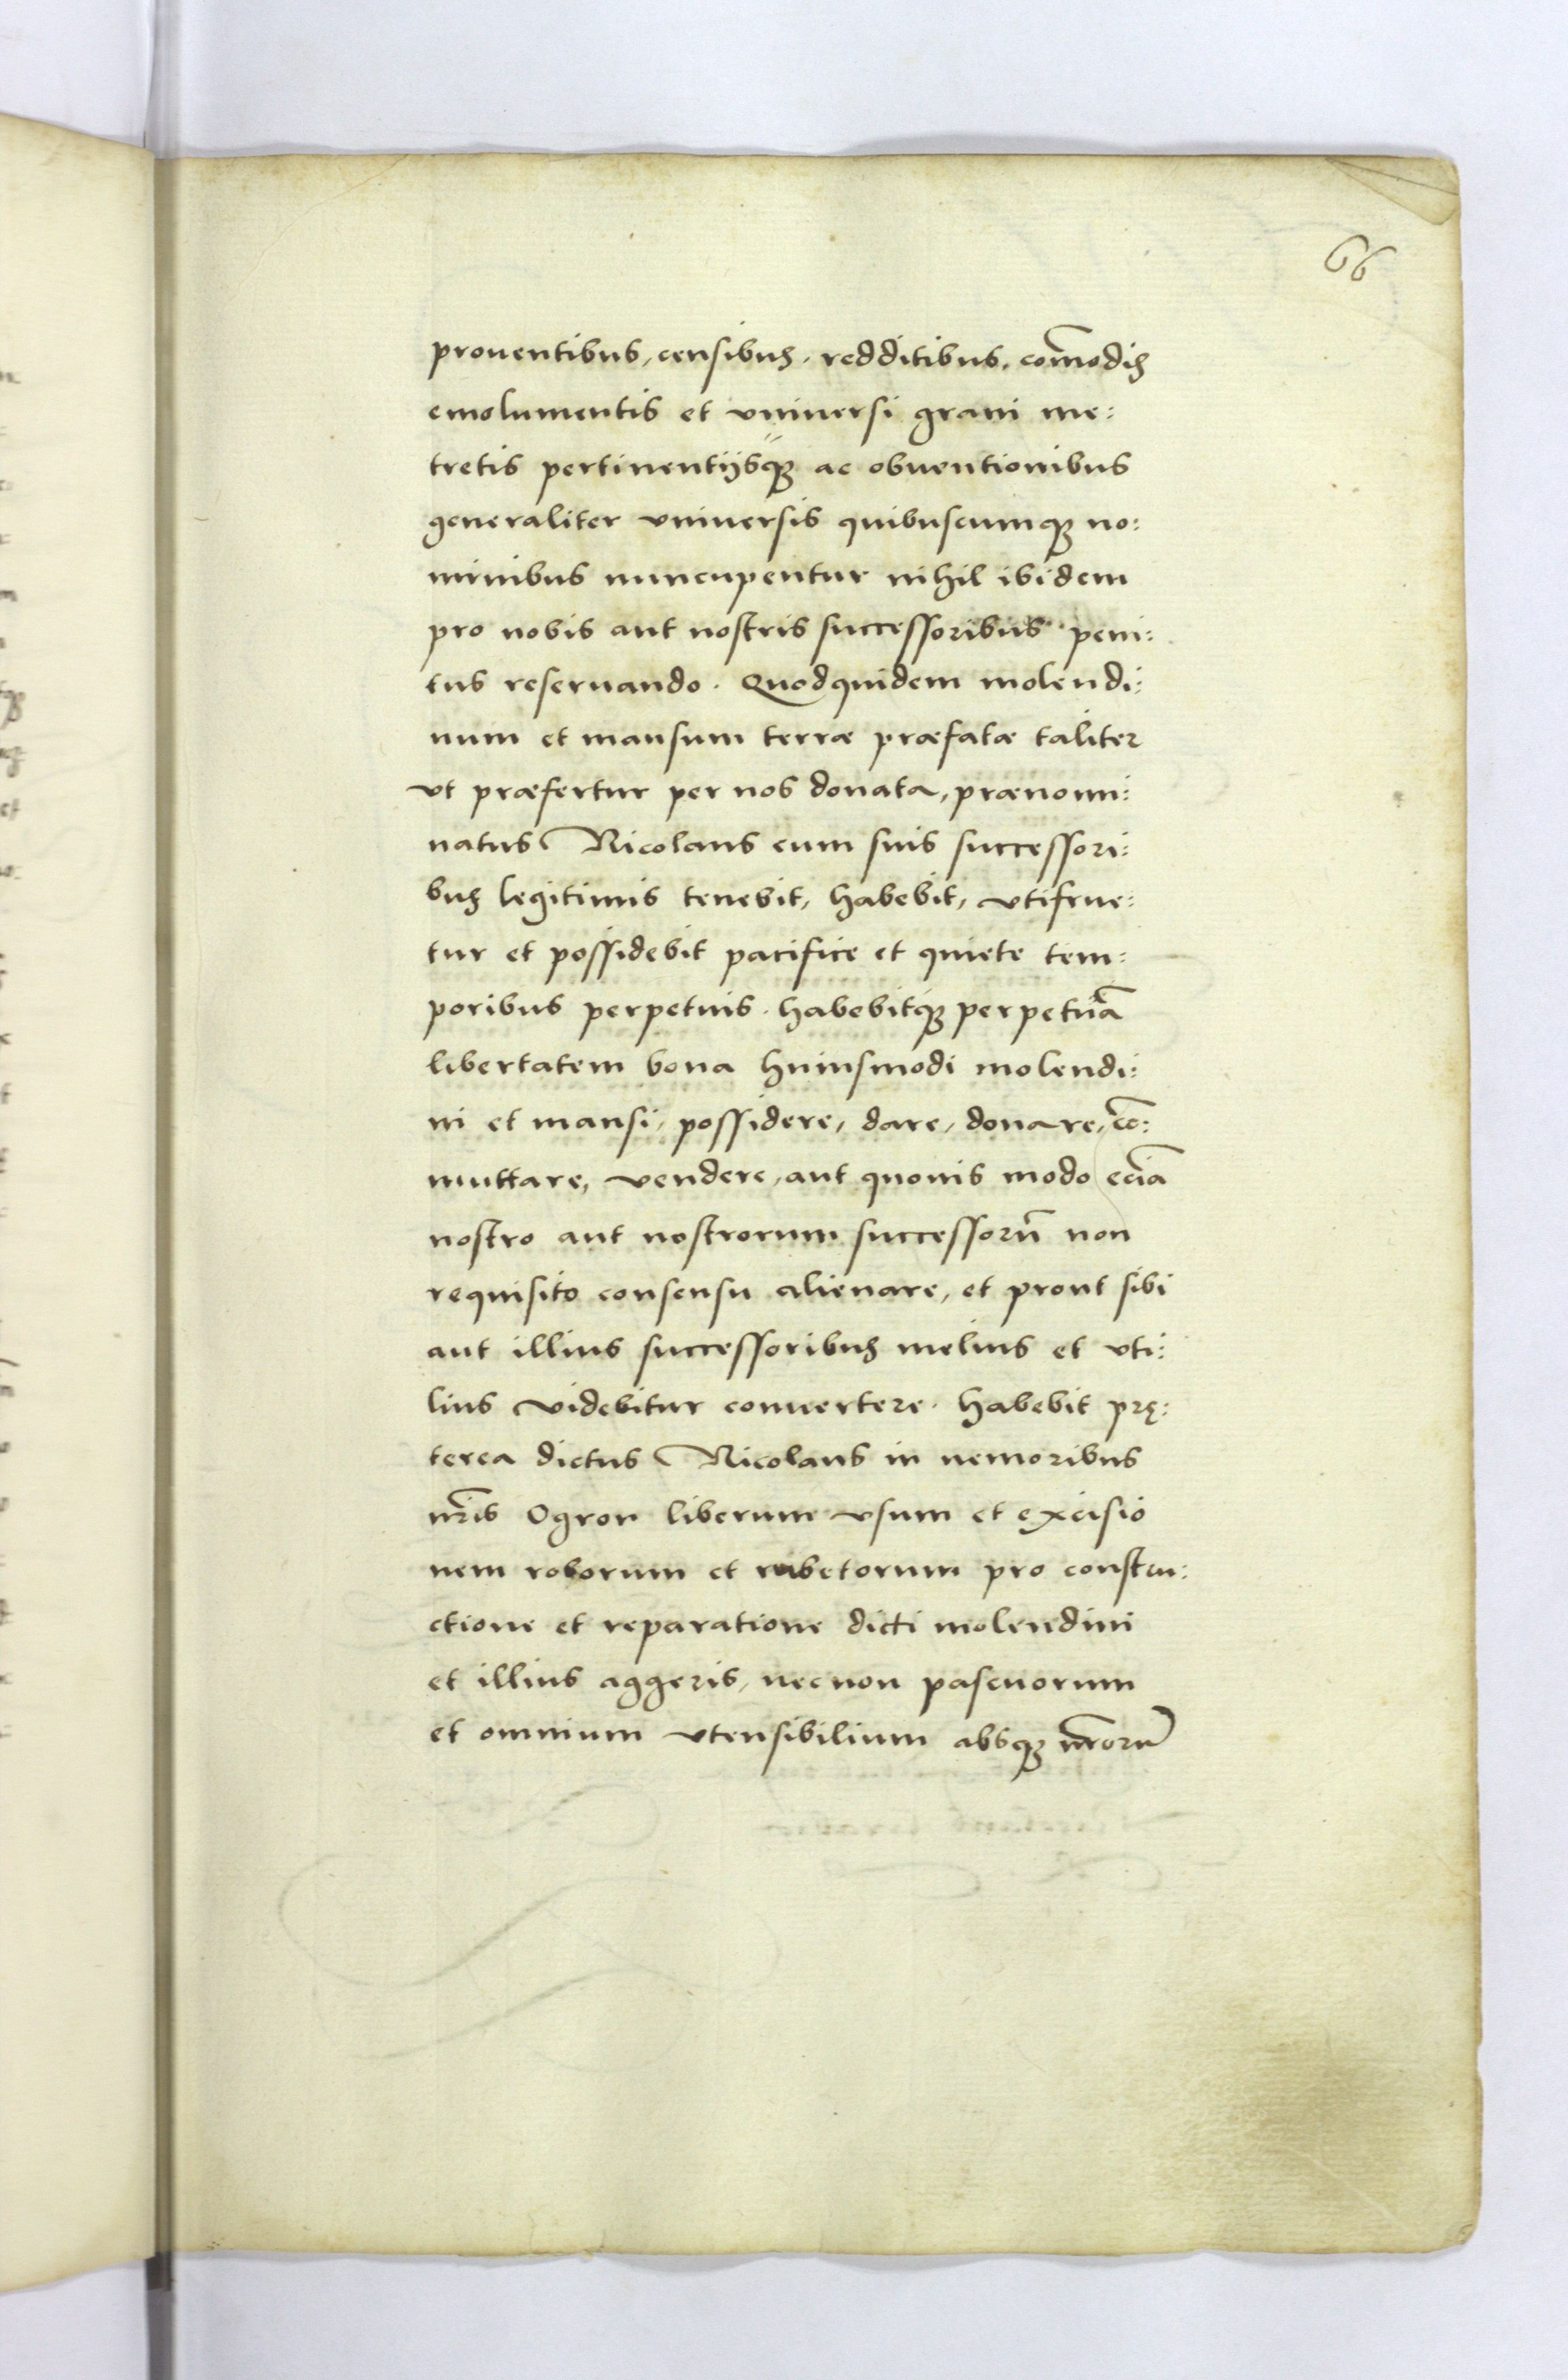 66
prouentibus, censibuꝫ. redditibus. com̄odiꝫ
emolumentis et vniuersi grani me:
tretis pertinentijsqꝫ ac obuentionibus
generaliter vniuersis quibuscumqꝫ no:
minibus nuncupentur nihil ibidem
pro nobis aut nostris successoribus peni:
tus reseruando. Quodquidem molendi:
num et mansum terræ præfatæ taliter
vt præfertur per nos donata, prænomi:
natus Nicolaus cum suis successori:
buꝫ legitimis tenebit, habebit, vtifrue:
tur et possidebit pacifice et quiete tem:
poribus perpetuis. habebitqꝫ perpetuā
libertatem bona huiusmodi molendi:
ni et mansi, possidere, dare, donare, cō:
muttare, vendere, aut quouis modo eciā
nostro aut nostrorum successorū non
requisito consensu alienare, et prout sibi
aut illius successoribuꝫ melius et vti:
lius videbitur conuertere. habebit prę:
terea dictus Nicolaus in nemoribus
nr̄is Ogron liberum vsum et excisio
nem roborum et rubetorum pro constru:
ctione et reparatione dicti molendini
et illius aggeris, necnon pascuorum
et omnium vtensibilium absqꝫ nr̄orū